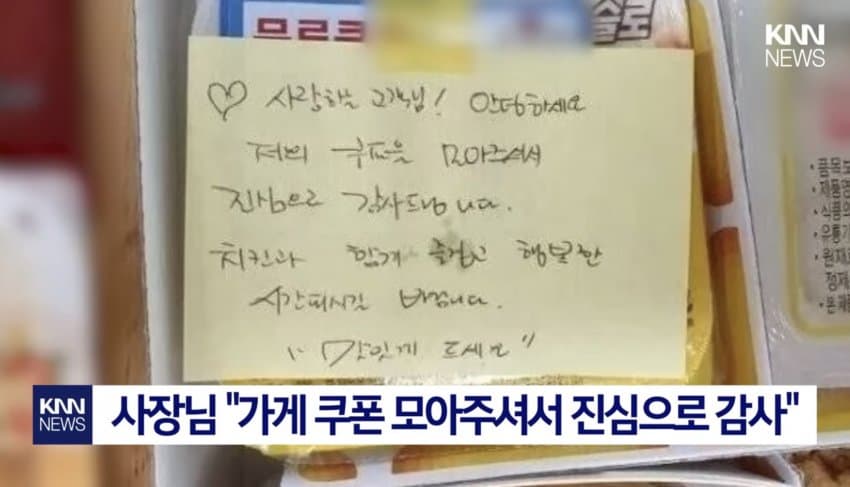 KNN
NEWS
♡ 사랑하는 고객님! 안녕하세요
저희 쿠폰을 모아주셔서
진심으로 감사드립니다.
치킨과 함께 즐겁고 행복한
시간되시길 바랍니다.
"맛있게 드세요"
품목보
제품명
식품의
유통기
원재료
정제
본제
KNN
NEWS
사장님 "가게 쿠폰 모아주셔서 진심으로 감사"